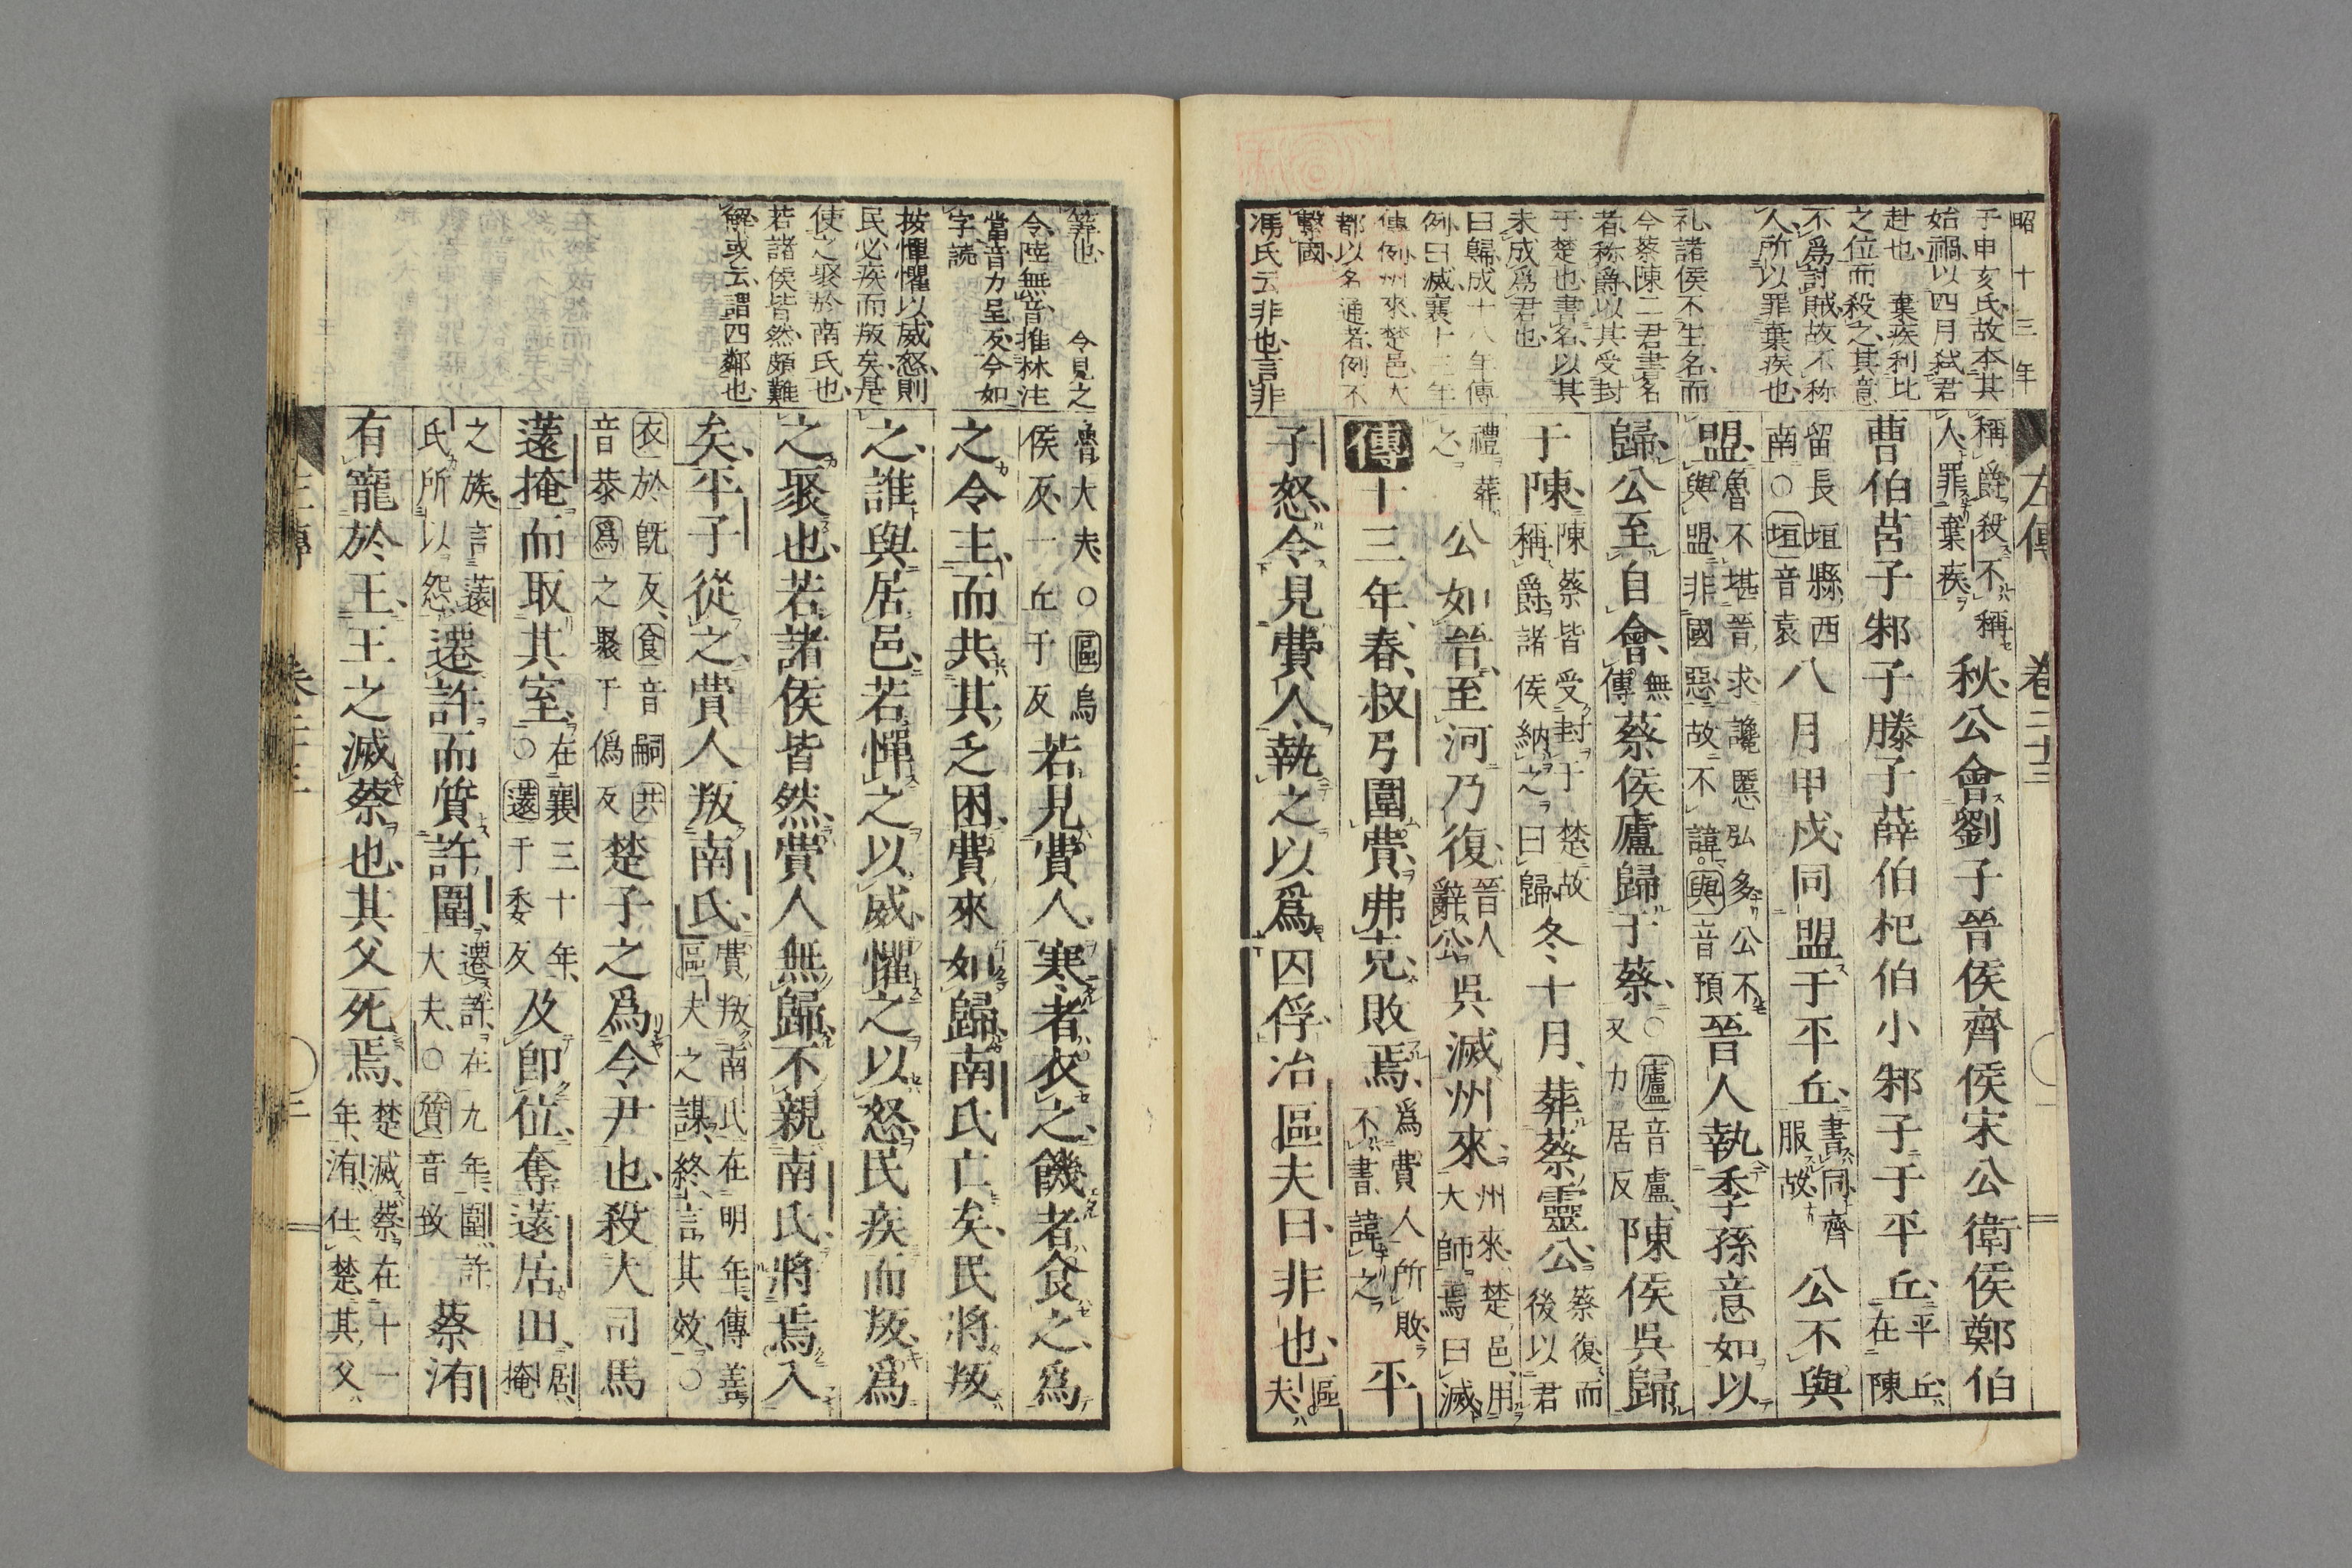 昭十三年
子申亥氏故本其
始禍以四月弑君
赴也棄疾利比
之位而殺之其意
不爲討賊故不称
人所以罪棄疾也
礼諸侯不生名而
今蔡陳二君書名
者称爵以其受封
于楚也書名以其
未成爲君也
曰歸成十八年傳
例曰滅襄十三年
傳例州來楚邑大
都以名通者例不
繋國
馮氏云非也言非
左傳 卷二十三
稱爵殺不稱
人罪棄疾
秋公會劉子晉侯齊侯宋公衛侯鄭伯
曹伯莒子邾子滕子薛伯杞伯小邾子于平丘
平丘
在陳
留長垣縣西
南○垣音袁
八月甲戌同盟于平丘
書同齊
服故
公不與
盟
魯不堪晉求讒慝弘多公不
與盟非國惡故不諱與音預
晉人執季孫意如以
歸公至自會
無
傳
蔡侯廬歸于蔡
○廬音盧
又力居反
陳侯吳歸
于陳
陳蔡皆受封于楚故
稱爵諸侯納之曰歸
冬十月葬蔡靈公
蔡復而
後以君
禮葬
之
公如晉至河乃復
晉人
辭公
吳滅州來
州來楚邑用
大師焉曰滅
傳十三年春叔弓圍費弗克敗焉
爲費人所敗
不書諱之
平
子怒令見費人執之以爲囚俘冶區夫曰非也
區
夫
等也 今見之
令陸無音推林注
當音力呈反今如
字読
按憚懼以威怒則
民必疾而叛矣是
使之聚於南氏也
若諸侯皆然頗難
解或云謂四鄰也
魯大夫○區烏
侯反一丘于反
若見費人寒者衣之饑者食之爲
之令主而共其乏困費來如歸南氏亡矣民將叛
之誰與居邑若憚之以威懼之以怒民疾而叛爲
之聚也若諸侯皆然費人無歸不親南氏將焉入
矣平子從之費人叛南氏
費叛南氏在明年傳善
區夫之謀終言其效○
衣於既反食音嗣共
音恭爲之聚于僞反
楚子之爲令尹也殺大司馬
薳掩而取其室
在襄三十年
○薳于委反
及即位奪薳居田
居
掩
之族言薳
氏所以怨
遷許而質許圍
遷許在九年圍許
大夫○質音致
蔡洧
有寵於王王之滅蔡也其父死焉
楚滅蔡在十一
年洧仕楚其父